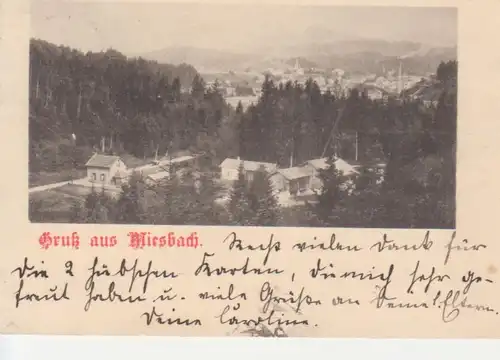 Gruß aus Miesbach.
Recht vielen Dank für
die 2 hübschen Karten, die mich sehr ge-
freut haben u. viele Grüße an Deine l. Eltern.
Deine Caroline.